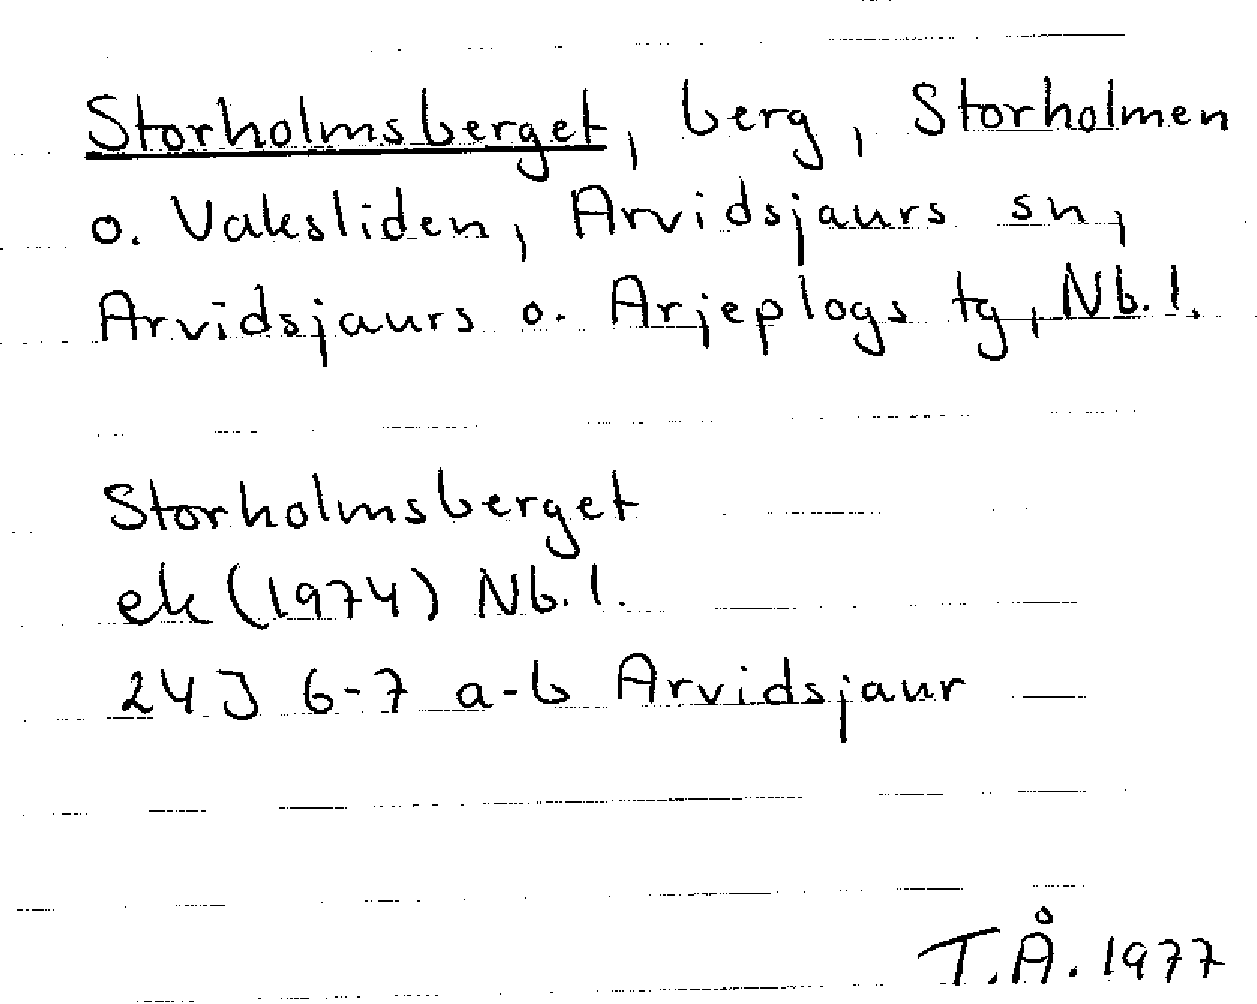 Storholmsberget, berg, Storholmen
o. Vaksliden, Arvidsjaurs sn,
Arvidsjaurs o. Arjeplogs tg, Nb. l.
Storholmsberget
ek (1974) Nb. l.
24J 6-7 a-b Arvidsjaur
T.Å. 1977